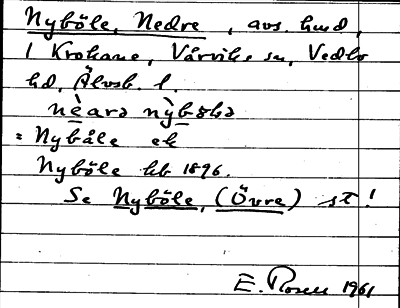 Nyböle, Nedre, avs. lund,
i Krokane, Vårviks sn, Vedbo
hd, Älvsb. l.
nèarə nỳbölə
= Nybåle ek
Nyböle kb 1896.
Se Nyböle, (Övre) st!
E. Rosen 1961